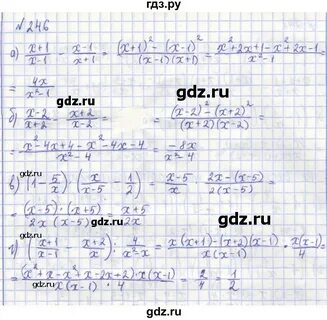 №246
а) (x+1)/(x-1) - (x-1)/(x+1) = ((x+1)² - (x-1)²)/((x-1)(x+1)) = (x²+2x+1-x²+2x-1)/(x²-1) =
= 4x/(x²-1)
gdz.ru
б) (x-2)/(x+2) - (x+2)/(x-2) = ((x-2)² - (x+2)²)/((x+2)(x-2)) =
= (x²-4x+4-x²-4x-4)/(x²-4) = -8x/(x²-4)
gdz.ru
в) (1-5/x)·(x/(x-5) - 1/2) = (x-5)/x · (2x-(x-5))/(2(x-5)) =
= ((x-5)·(x+5))/(2x(x-5)) = (x+5)/2x
gdz.ru
г) ((x+1)/(x-1) - (x+2)/x) : 4/(x²-x) = (x(x+1)-(x+2)(x-1))/(x(x-1)) · x(x-1)/4 =
= ((x²+x-x²+x-2x+2)·x(x-1))/(x(x-1)·4) = 2/4 = 1/2
gdz.ru